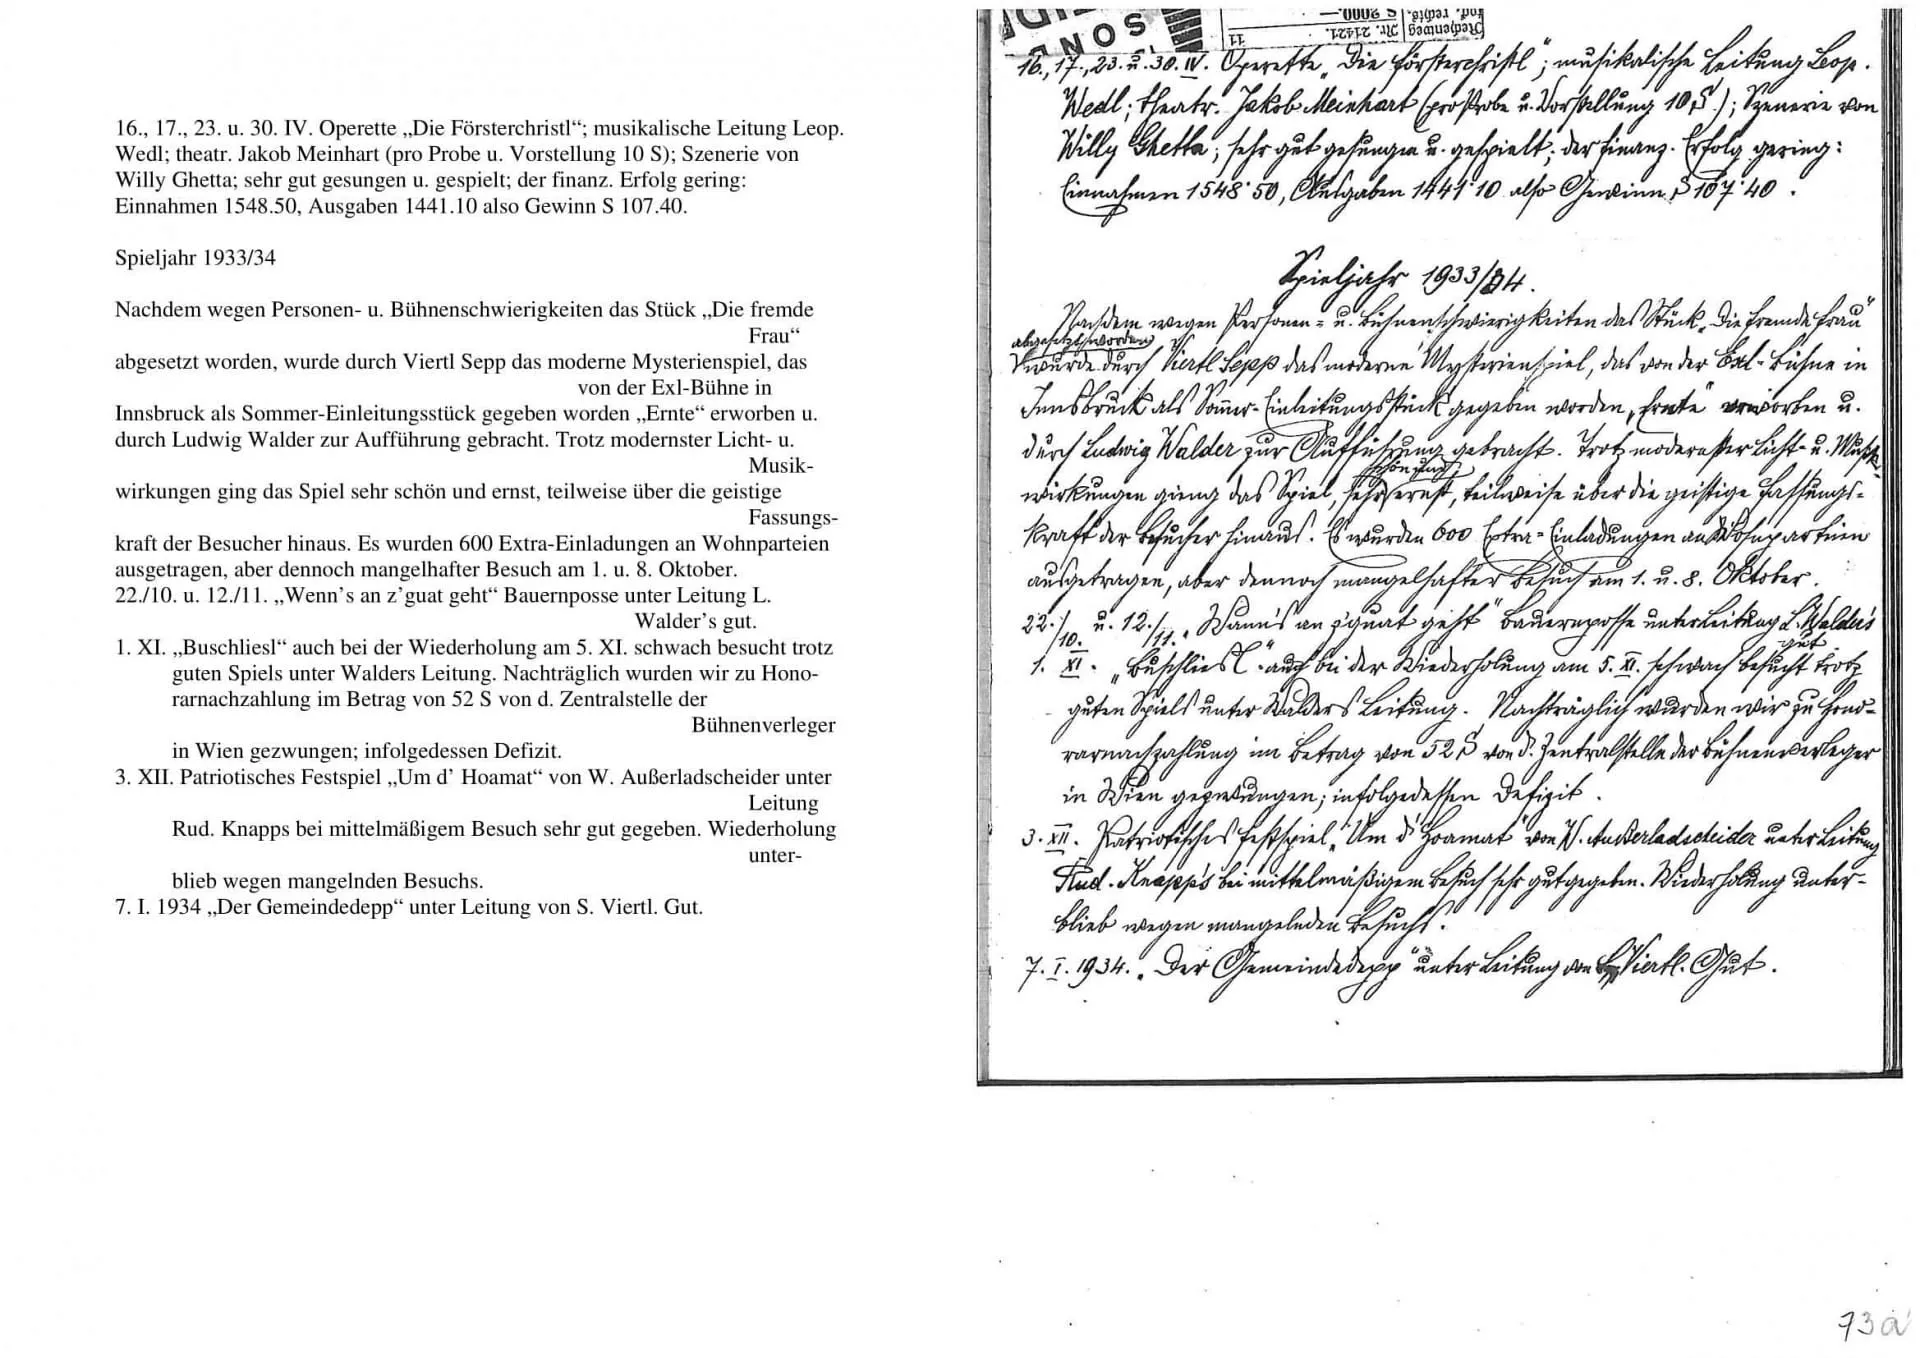 16., 17., 23. u. 30. IV. Operette „Die Försterchristl“; musikalische Leitung Leop.
Wedl; theatr. Jakob Meinhart (pro Probe u. Vorstellung 10 S); Szenerie von
Willy Ghetta; sehr gut gesungen u. gespielt; der finanz. Erfolg gering:
Einnahmen 1548.50, Ausgaben 1441.10 also Gewinn S 107.40.
Spieljahr 1933/34
Nachdem wegen Personen- u. Bühnenschwierigkeiten das Stück „Die fremde
Frau“
abgesetzt worden, wurde durch Viertl Sepp das moderne Mysterienspiel, das
von der Exl-Bühne in
Innsbruck als Sommer-Einleitungsstück gegeben worden „Ernte“ erworben u.
durch Ludwig Walder zur Aufführung gebracht. Trotz modernster Licht- u.
Musik-
wirkungen ging das Spiel sehr schön und ernst, teilweise über die geistige
Fassungs-
kraft der Besucher hinaus. Es wurden 600 Extra-Einladungen an Wohnparteien
ausgetragen, aber dennoch mangelhafter Besuch am 1. u. 8. Oktober.
22./10. u. 12./11. „Wenn’s an z’guat geht“ Bauernposse unter Leitung L.
Walder’s gut.
1. XI. „Buschliesl“ auch bei der Wiederholung am 5. XI. schwach besucht trotz
guten Spiels unter Walders Leitung. Nachträglich wurden wir zu Hono-
rarnachzahlung im Betrag von 52 S von d. Zentralstelle der
Bühnenverleger
in Wien gezwungen; infolgedessen Defizit.
3. XII. Patriotisches Festspiel „Um d’ Hoamat“ von W. Außerladscheider unter
Leitung
Rud. Knapps bei mittelmäßigem Besuch sehr gut gegeben. Wiederholung
unter-
blieb wegen mangelnden Besuchs.
7. I. 1934 „Der Gemeindedepp“ unter Leitung von S. Viertl. Gut.
SONE
Rechenweg Nr. 21421. 11
S 2000.—
16., 17., 23. u. 30. IV. Operette „Die Försterchristl“; musikalische Leitung Leop.
Wedl; theatr. Jakob Meinhart (pro Probe u. Vorstellung 10 S.); Szenerie von
Willy Ghetta; sehr gut gesungen u. gespielt; der finanz. Erfolg gering:
Einnahmen 1548˙50, Ausgaben 1441˙10 also Gewinn S 107˙40.
Spieljahr 1933/34.
Nachdem wegen Personen- u. Bühnenschwierigkeiten das Stück „Die fremde Frau“
abgesetzt worden
wurde durch Viertl Sepp das moderne Mysterienspiel, das von der Exl-Bühne in
Innsbruck als Sommer-Einleitungsstück gegeben worden „Ernte“ erworben u.
durch Ludwig Walder zur Aufführung gebracht. Trotz modernster Licht- u. Musik-
schön und
wirkungen gieng das Spiel, sehr ernst, teilweise über die geistige Fassungs-
kraft der Besucher hinaus. Es wurden 600 Extra-Einladungen an Wohnparteien
ausgetragen, aber dennoch mangelhafter Besuch am 1. u. 8. Oktober.
22./10. u. 12./11. „Wann's an z'guat geht“ Bauernposse unter Leitung L. Walder's
gut.
1. XI. „Buschliesl“ auch bei der Wiederholung am 5. XI. schwach besucht trotz
guten Spiels unter Walders Leitung. Nachträglich wurden wir zu Hono-
rarnachzahlung im Betrag von 52 S von d. Zentralstelle der Bühnenverleger
in Wien gezwungen; infolgedessen Defizit.
3. XII. Patriotisches Festspiel „Um d' Hoamat“ von W. Außerladscheider unter Leitung
Rud. Knapp's bei mittelmäßigem Besuch sehr gut gegeben. Wiederholung unter-
blieb wegen mangelnden Besuchs.
7. I. 1934. „Der Gemeindedepp“ unter Leitung von S. Viertl. Gut.
73a